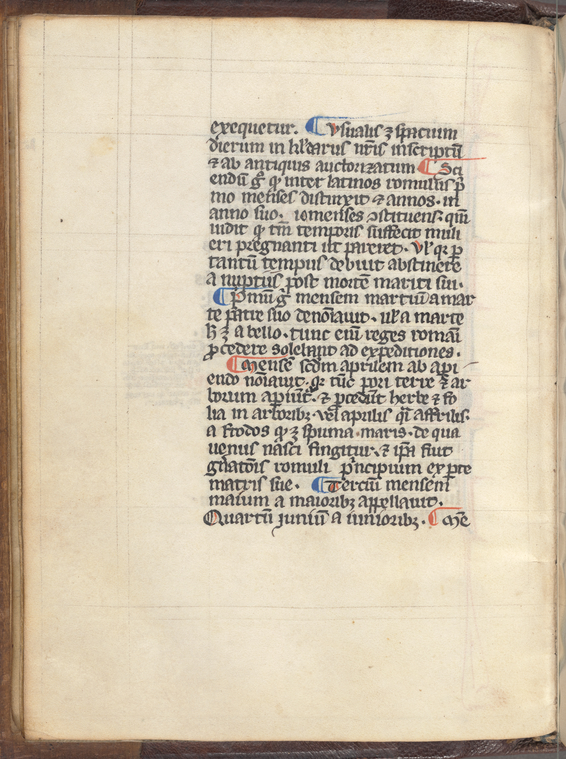 exequetur. ¶ Vsualis ⁊ spatium
dierum in kl'darus nr̄is inscriptū
⁊ ab antiquis auctorizatum ¶ Sci
endū g̃ q̛ inter latinos romulus p̛
mo menses distinxit ⁊ annos. in
anno suo. menses ɔstituens. qm̄
iudit q̛ tm̄ temporis suffecit muli
eri pregnanti ut pareret. Vl' q̛ ꝑ
tantū tempus debuit abstinere
a nuptiis post mortē mariti sui.
¶ P̛mū g̃ mensem martiū a mar
te patre suo denōīauit. ul' a marte
.i. a bello. tunc eni reges romāi
ꝓcedere solebant ad expeditiones.
¶ Mensē scdm aprilem ab api
endo nōīauit. q̛ tūc pori terre ⁊ ar
borum apiūt̄. ⁊ ꝓcedūt herbe ⁊ fo
lia in arboribꝫ. vel aprilis q̄i affrilis.
a frodos q̛ ÷ spuma maris. de qua
uenus nasci fingitur. ⁊ ip̄a fuit
gn̄atōis romuli p̛ncipium ex ꝑte
matris sue. ¶ Tercíū mensem
maium a maioribꝫ appellauit.
Quartū iuniū a iunioribꝫ. ¶ Mē